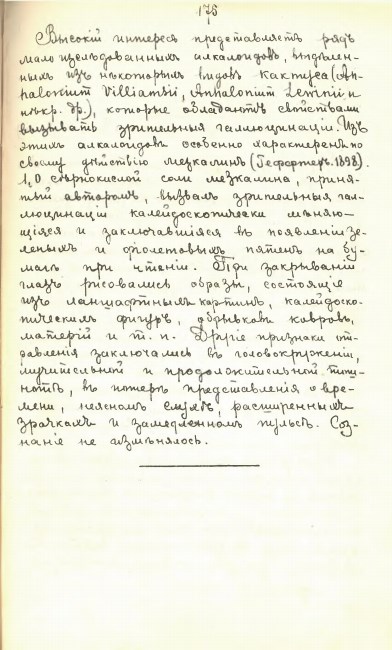 176
Высокій интересъ представляетъ рядъ
мало изслѣдованныхъ алкалоидовъ, выдѣлен-
ныхъ изъ нѣкоторыхъ видовъ кактуса (An-
halonium Villiamsii, Anhalonium Levinii и
нѣкр. др.), которые обладаютъ свойствами
вызывать зрительныя галлюцинаціи. Изъ
этихъ алкалоидовъ особенно характеренъ по
своему дѣйствію мезкалинъ (Гефтеръ. 1898).
1,0 сѣрнокислой соли мезкалина, приня-
тый авторомъ, вызвалъ зрительныя гал-
люцинаціи калейдоскопически мѣняю-
щіяся и заключавшіяся въ появленіи зе-
леныхъ и фіолетовыхъ пятенъ на бу-
магѣ при чтеніи. При закрываніи
глазъ рисовались образы, состоящіе
изъ ландшафтныхъ картинъ, калейдоско-
пическихъ фигуръ, обрывковъ ковровъ,
матерій и т. п. Другіе признаки от-
равленія заключались въ головокруженіи,
мучительной и продолжительной тош-
нотѣ, въ потерѣ представленія о вре-
мени, неясномъ слухѣ, расширенныхъ
зрачкахъ и замедленномъ пульсѣ. Соз-
наніе не измѣнялось.